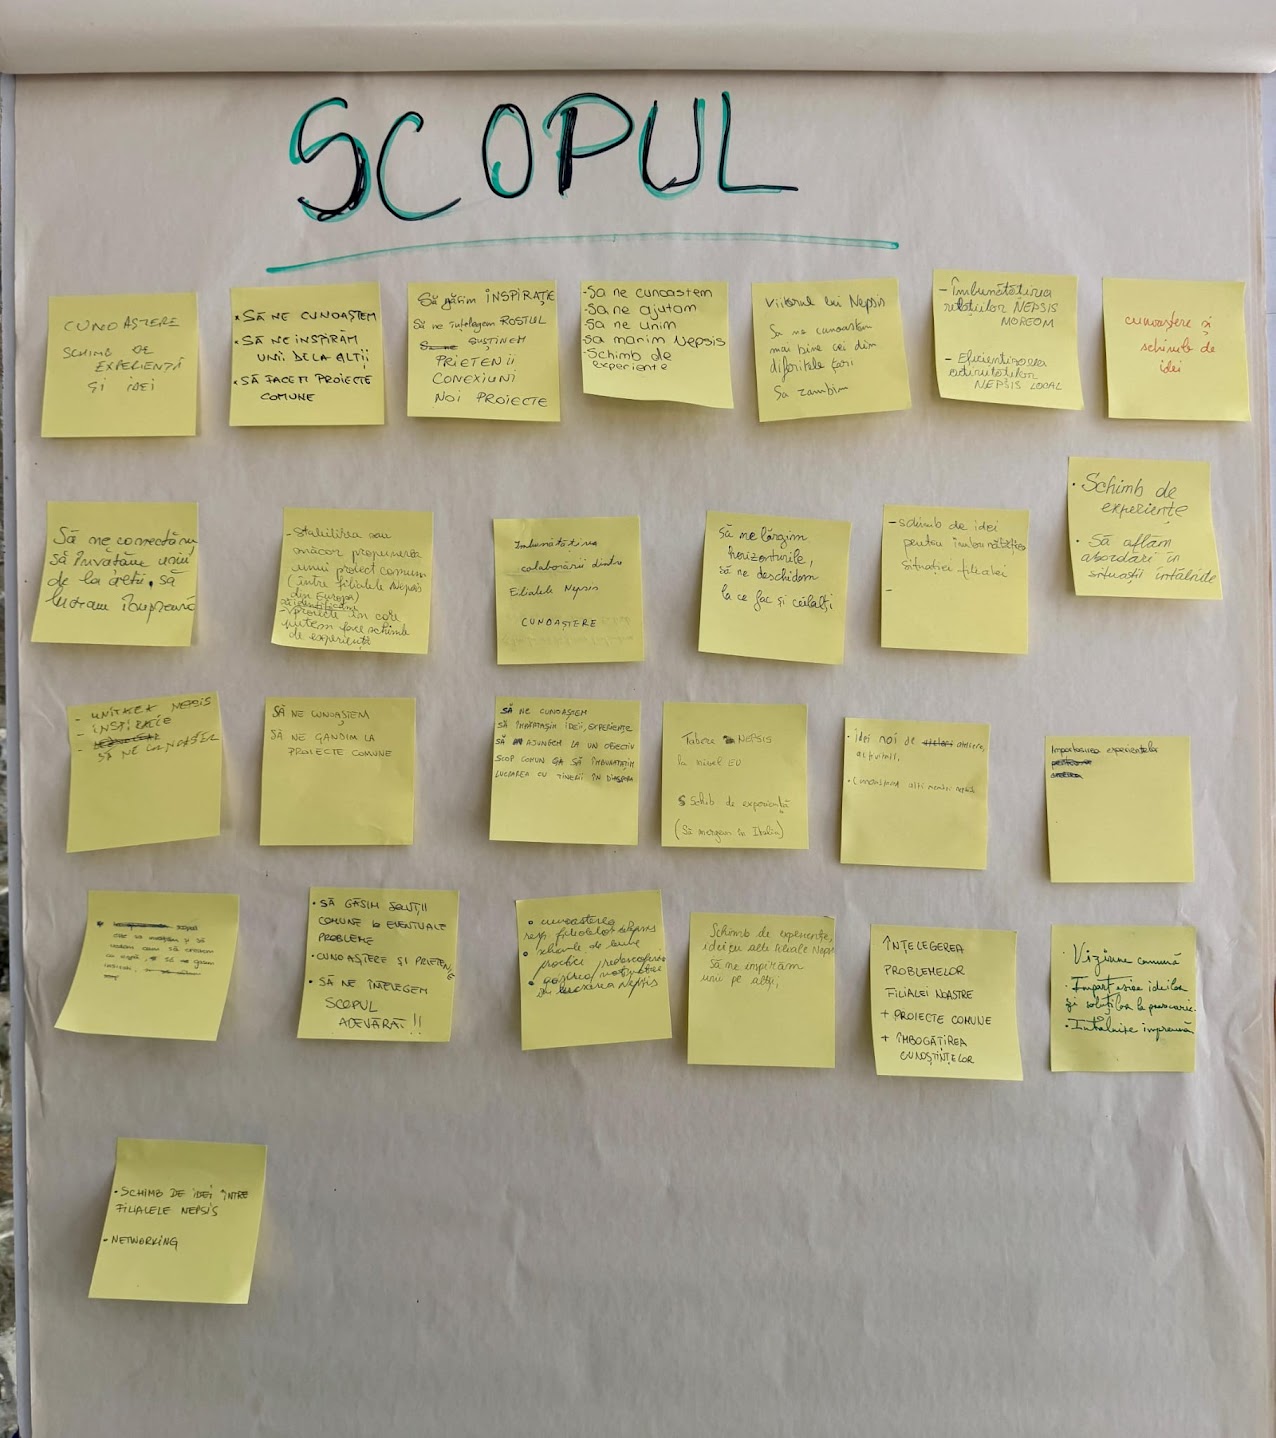 SCOPUL
CUNOAȘTERE
SCHIMB DE
EXPERIENȚĂ
ȘI IDEI
• SĂ NE CUNOAȘTEM
• SĂ NE INSPIRĂM
UNII DE LA ALȚII
• SĂ FACEM PROIECTE
COMUNE
Să găsim INSPIRAȚIE
Să ne înțelegem ROSTUL
SUSȚINEM
PRIETENII
CONEXIUNI
NOI PROIECTE
- Sa ne cunoastem
- Sa ne ajutam
- Sa ne unim
- Sa marim Nepsis
- Schimb de
experiente
Viitorul lui Nepsis
Sa ne cunoastem
mai bine cei din
diferitele țari
Sa zambim
- Îmbunătățirea
relațiilor NEPSIS
MOREOM
- Eficientizarea
activităților
NEPSIS LOCAL
cunoaștere și
schimb de
idei
Să ne conectăm,
să învățăm unii
de la alții, să
lucrăm împreună
- Stabilirea sau
măcar propunerea
unui proiect comun
(între filialele Nepsis
din Europa)
să identificăm
- proiecte în care
putem face schimb
de experiență
Imbunătățirea
colaborării dintre
Filialele Nepsis
CUNOAȘTERE
Să ne lărgim
horizonturile,
să ne deschidem
la ce fac și ceilalți
- schimb de idei
pentru îmbunătățirea
situației filialei
-
• Schimb de
experiențe
• Să aflăm
abordări în
situații întâlnite
- UNITATEA NEPSIS
- INSPIRAȚIE
- SĂ NE CUNOAȘTEM
SĂ NE CUNOAȘTEM
SĂ NE GANDIM LA
PROIECTE COMUNE
SĂ NE CUNOAȘTEM
SĂ ÎMPĂRTĂȘIM IDEII, EXPERIENȚE
SĂ AJUNGEM LA UN OBIECTIV
SCOP COMUN CA SĂ ÎMBUNĂTĂȚIM
LUCRAREA CU TINERII ÎN DIASPORA
Tabere NEPSIS
la nivel EU
Schib de experiență
(Să mergem în Italia)
• idei noi de ateliere,
activități,
• Cunoașterea alti membri
Impartasirea experientelor
sa
si să
vedem cum să creștem
• SĂ GĂSIM SOLUȚII
COMUNE la EVENTUALE
PROBLEME
• CUNOAȘTERE ȘI PRIETENIE
• SĂ NE ÎNȚELEGEM
SCOPUL
ADEVĂRAT!!
• cunoasterea
resp. filialelor Nepsis
• schimb de bune
practici / redescoperirea
•
în lucrarea Nepsis
Schimb de experiențe,
idei cu alte filiale Nepsis
Să ne inspirăm
unii pe alții,
ÎNȚELEGEREA
PROBLEMELOR
FILIALEI NOASTRE
+ PROIECTE COMUNE
+ ÎMBOGĂȚIREA
CUNOȘTINȚELOR
• Viziune comună
• Împărtășirea ideilor
și soluțiilor la provocări.
• Întâlnire împreună
• SCHIMB DE IDEI ÎNTRE
FILIALELE NEPSIS
• NETWORKING